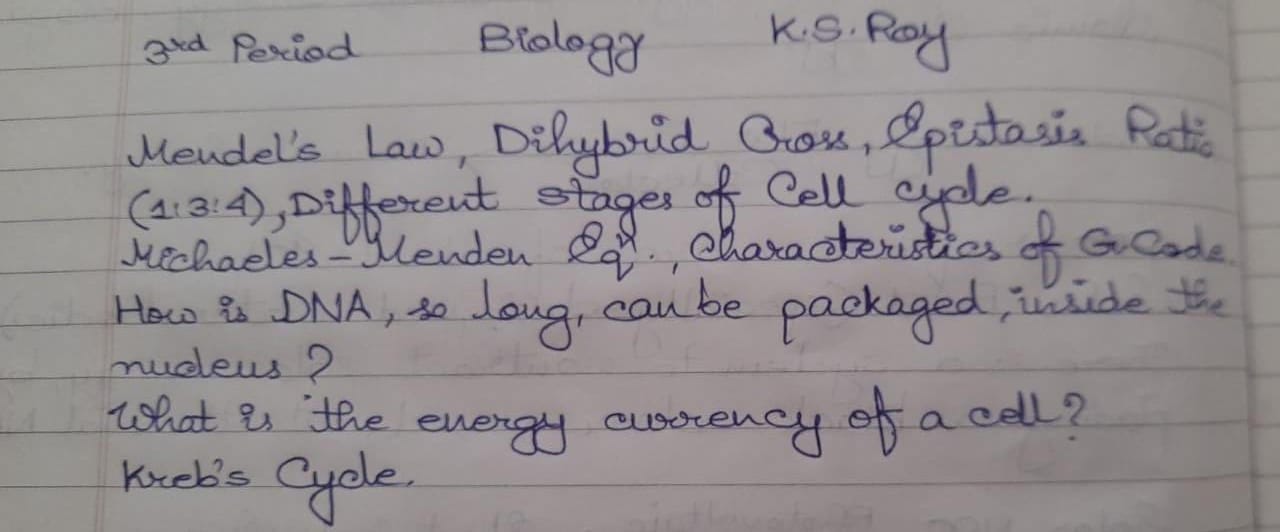 3rd Period Biology K.S. Roy
Mendel's Law, Dihybrid Cross, Epistasis Ratio
(1:3:4), Different stages of Cell cycle.
Michaeles-Menden Eqn., Characteristics of G.Code.
How is DNA, so long, can be packaged, inside the
nucleus?
What is the energy currency of a cell?
Kreb's Cycle.